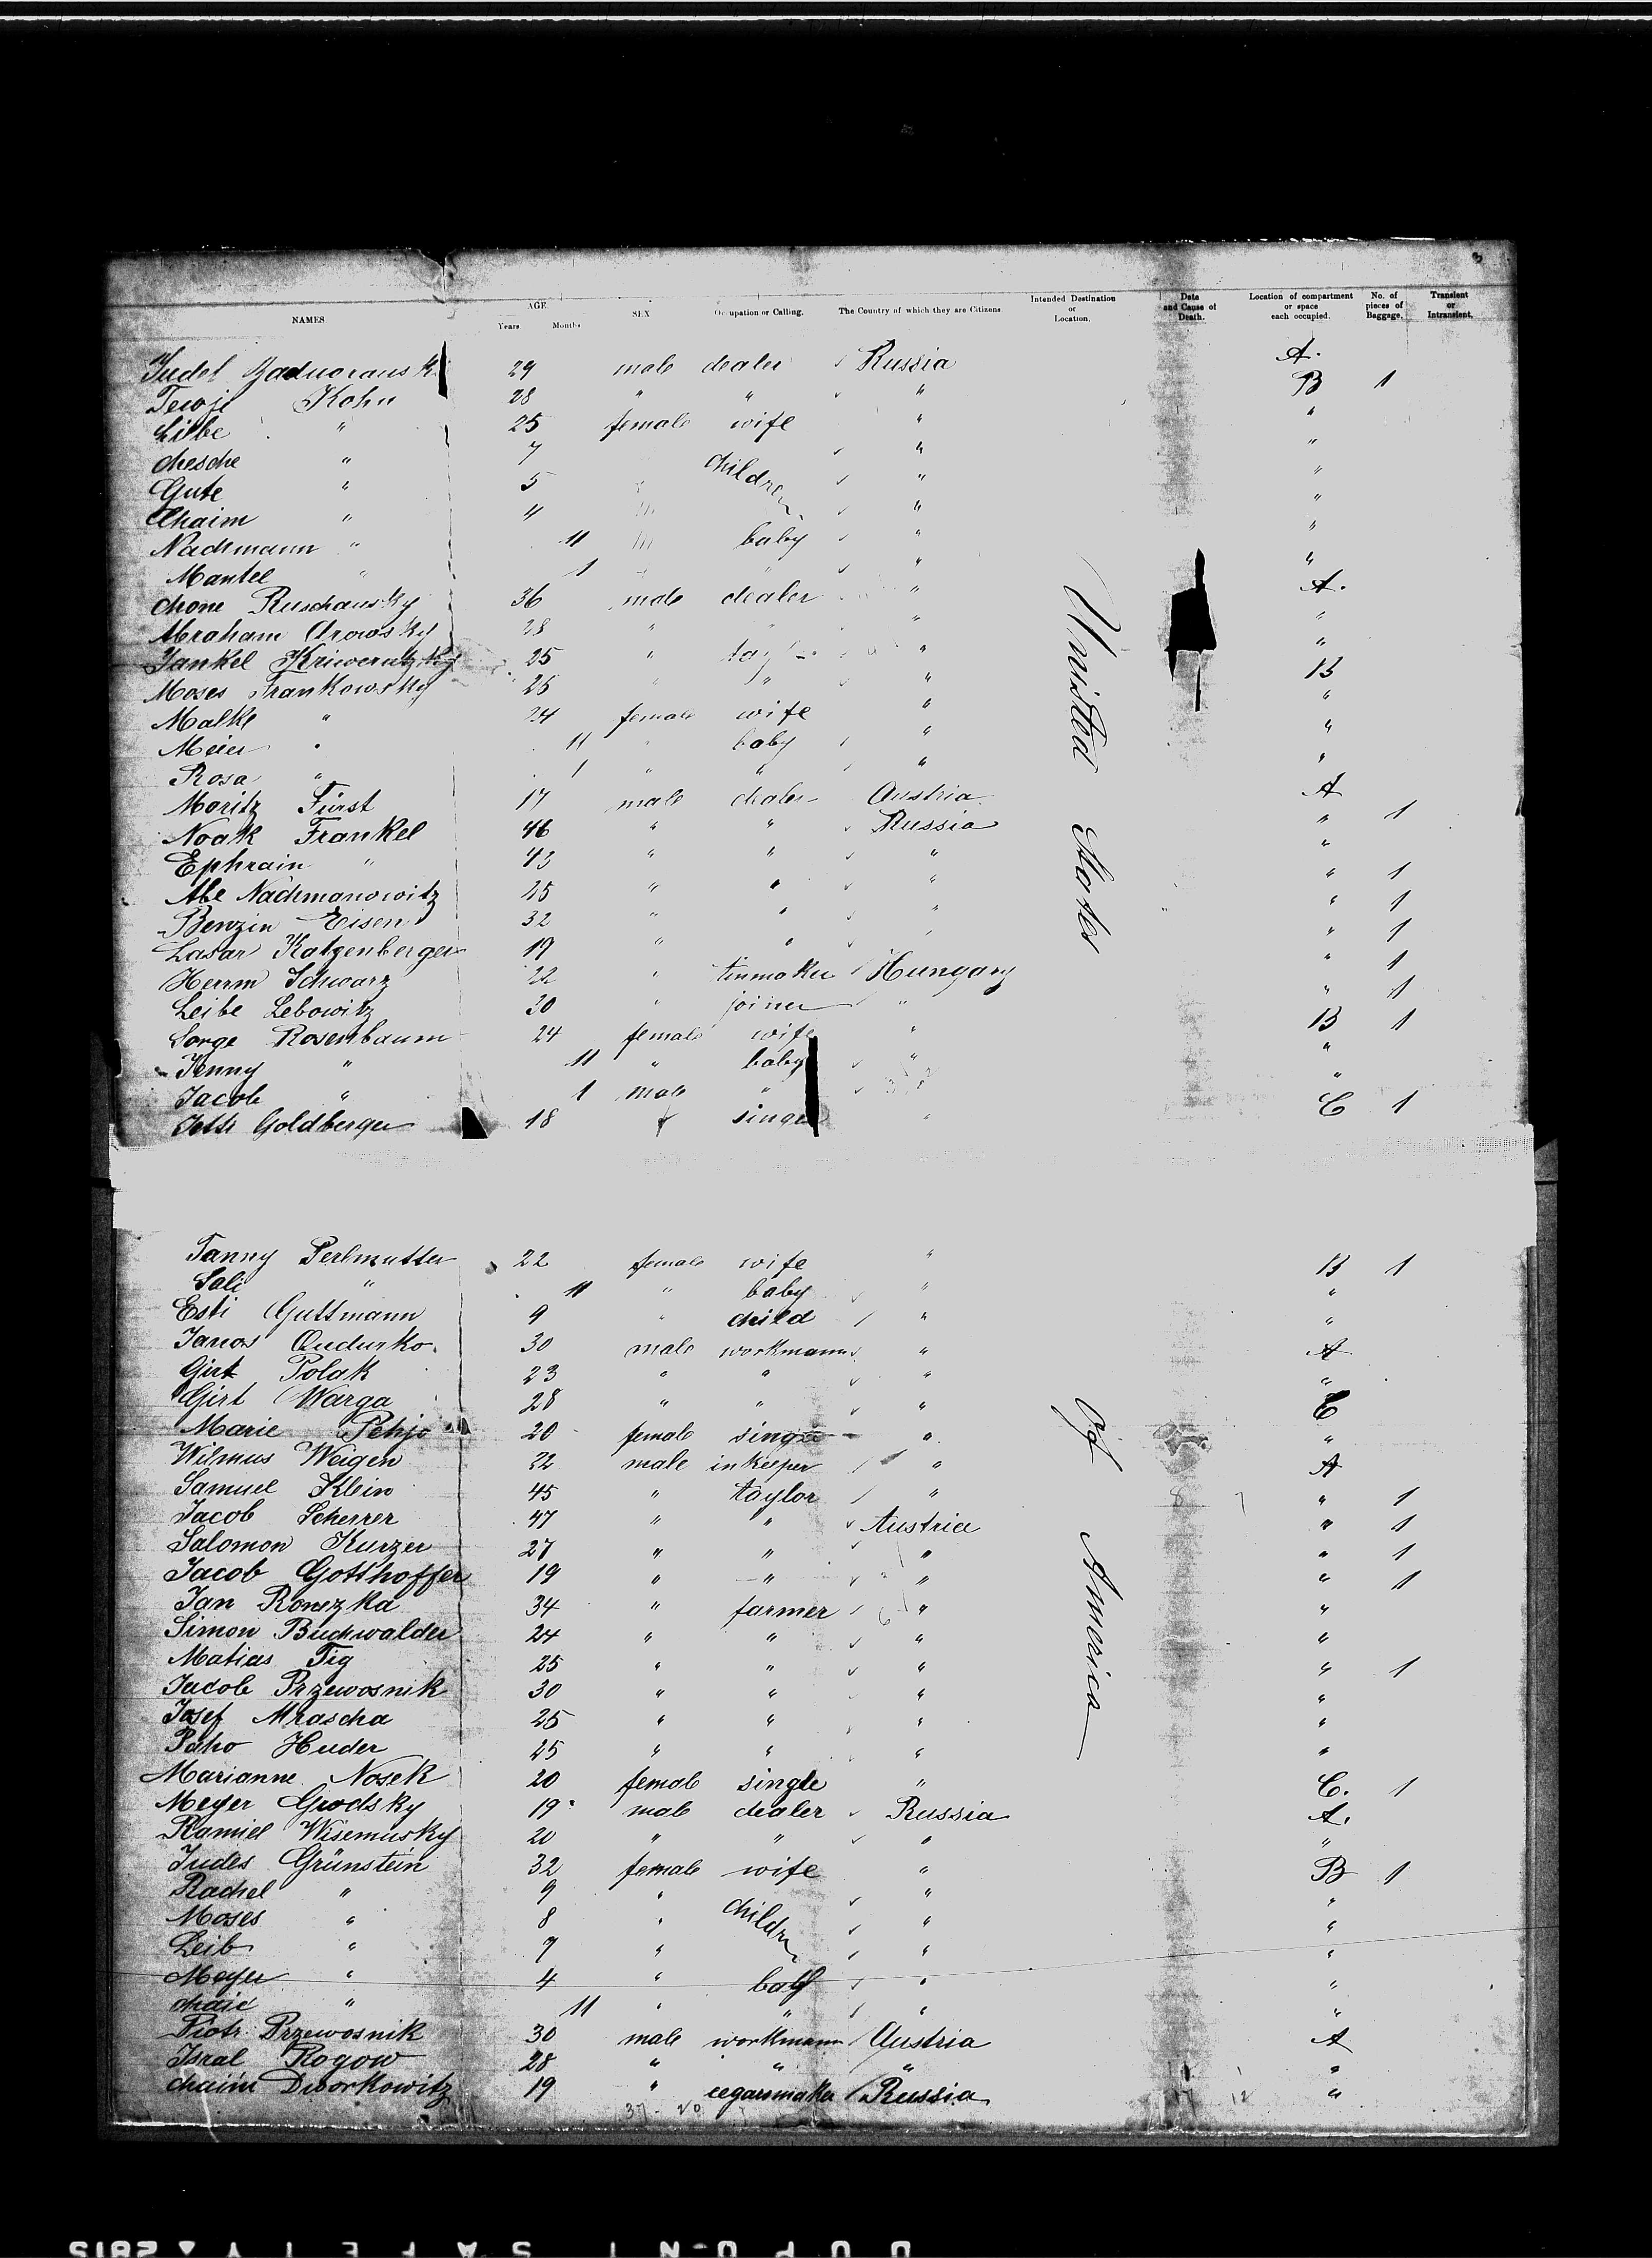 3
NAMES AGE Years. Months SEX Occupation or Calling. The Country of which they are Citizens Intended Destination or Location. Date and Cause of Death. Location of compartment or space each occupied. No. of pieces of Baggage. Transient or Intransient.
Judel 29 male dealer Russia A.
Tewje Kohn 28 " " " B 1
Libe " 25 female wife " "
chesche " 7 children " "
Gute " 5 " "
Chaim " 4 " "
Nachmann " 11 baby " "
Mantel " 1 " " "
chone Ruschansky 36 male dealer " A.
Abraham Orowsky 28 " " " "
Jankel Kriwerutzky 25 " " "
Moses Frankowsky 25 " " " B
Malke " 24 female wife " "
Meier " 11 " baby " "
Rosa " 1 " " " "
Moritz Fürst 17 male dealer Austria A
Noak Frankel 46 " " Russia " 1
Ephrain " 43 " " " "
Abe Nachmanowitz 25 " " " " 1
Benzin Eisen 32 " " " " 1
Lasar Katzenberger 19 " " " " 1
Herrm Schwarz 22 " tinmaker Hungary " 1
Leibe Lebowitz 30 " joiner " " 1
Sorge Rosenbaum 24 female wife " B 1
Jenny " 11 " baby " "
Jacob " 1 male " "
Goldberger 18 " singe " C 1
Fanny Perlmutter 22 female wife " B 1
Sali " 11 " baby " "
Esti Guttmann 9 " child " "
Janos 30 male workmann " A
Girt Polak 23 " " " "
Girt Warga 28 " " " C
Marie Pehjo 20 female single " "
Wilmus Weigen 22 male inkeeper " A
Samuel Klein 45 " taylor " " 1
Jacob Scherrer 47 " " Austria " 1
Salomon Kurzer 27 " " " " 1
Jacob Gotthoffer 19 " " " " 1
Jan Ronczka 34 " farmer " "
Simon Buchwalder 24 " " " "
Matias Tig 25 " " " " 1
Jacob Przewosnik 30 " " " "
Josef Mrascha 25 " " " "
Paho Huder 25 " " " "
Marianne Nosek 20 female single " C. 1
Meyer Grodsky 19 male dealer Russia A.
Ramiel Wisemusky 20 " " " "
Judes Grünstein 32 female wife " B 1
Rachel " 9 " children " "
Moses " 8 " " "
Leib " 7 " " "
Meyer " 4 " baby " "
chaie " 11 " " " "
Piotr Przewosnik 30 male workmann Austria A
Isral Rogow 28 " " " "
chaim Dworkowitz 19 " cegarsmaker Russia "
Unisted States of America
37 - 20 12
DUPONT SAFETY 2815